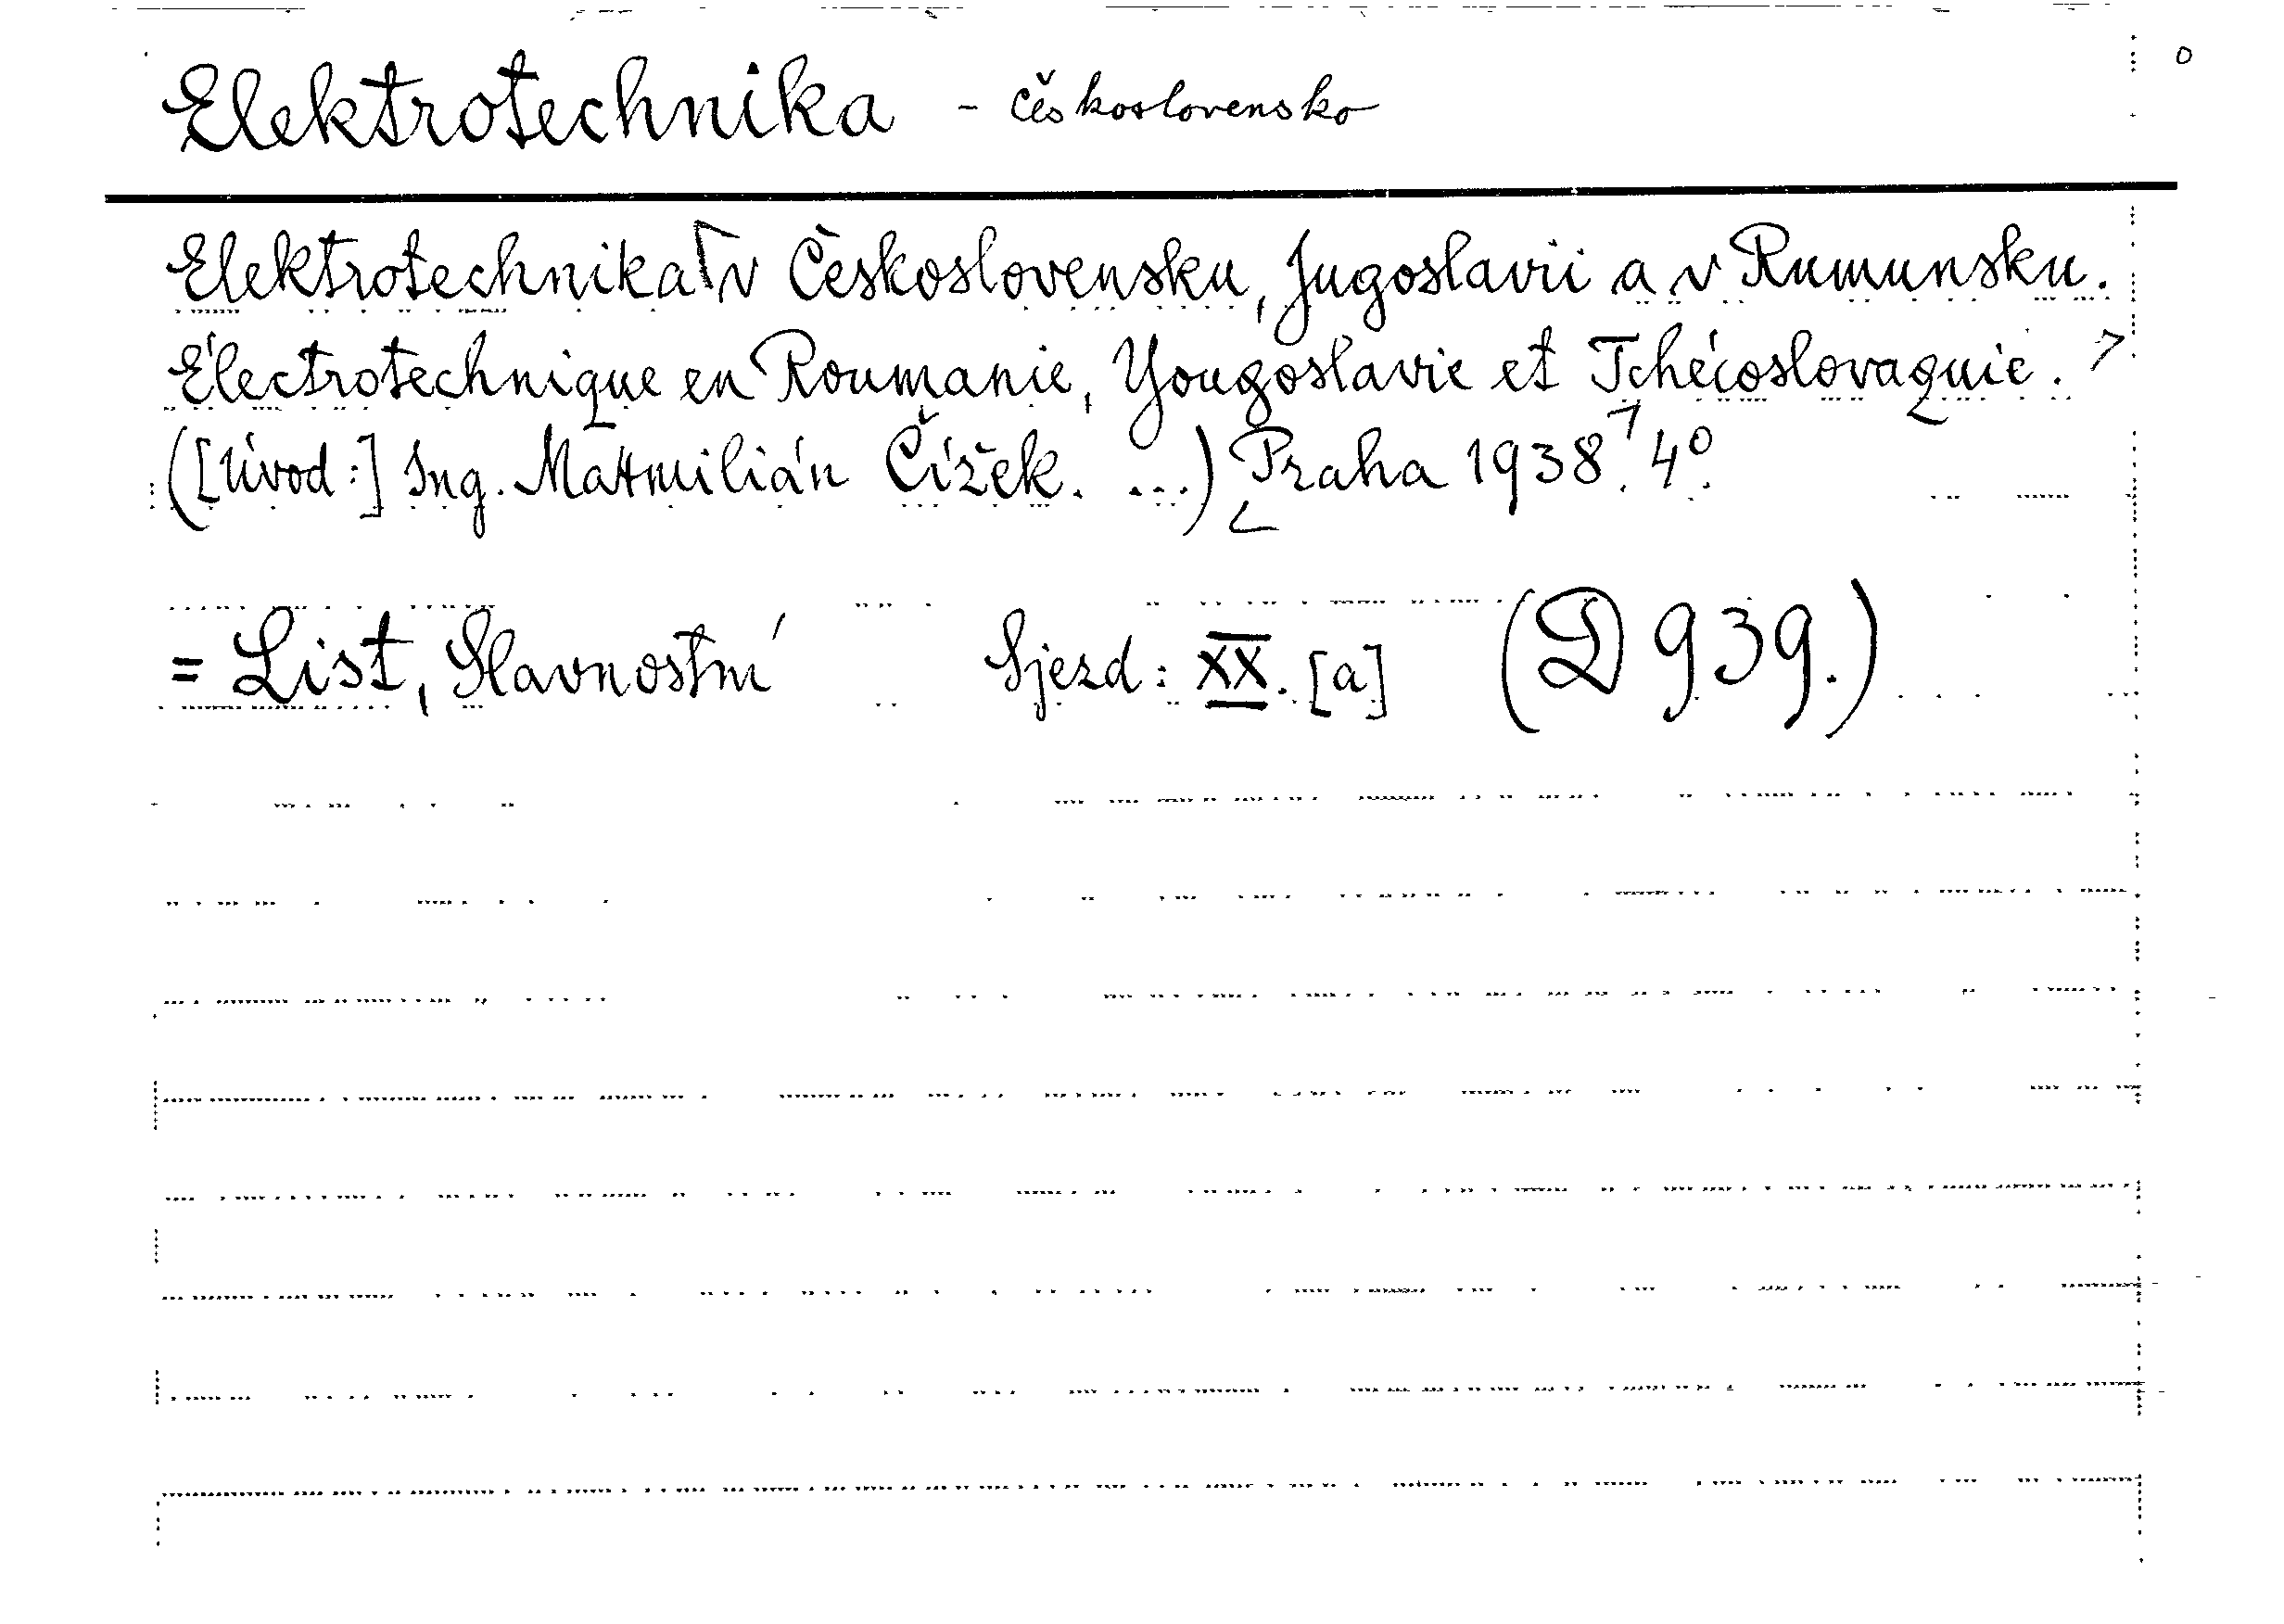 Elektrotechnika - Československo
Elektrotechnika v Československu, Jugoslavii a v Rumunsku.
Électrotechnique en Roumanie, Yougoslavie et Tchécoslovaquie.
([Úvod:] Ing. Maxmilián Čížek. ...) Praha 1938. 4°.
= List, Slavnostní Sjezd: XX. [a] (D 939.)